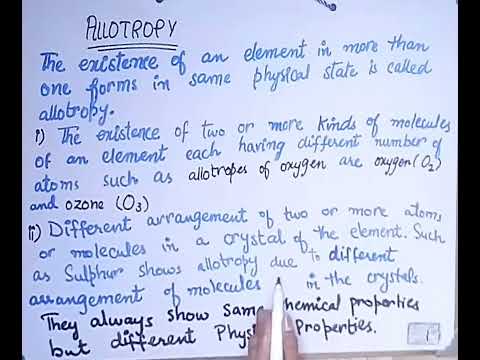 ALLOTROPY
The existence of an element in more than
one forms in same physical state is called
allotropy.
i) The existence of two or more kinds of molecules
of an element each having different number of
atoms such as allotropes of oxygen are oxygen (O₂)
and ozone (O₃)
ii) Different arrangement of two or more atoms
or molecules in a crystal of the element. Such
as Sulphur shows allotropy due to different
arrangement of molecules in the crystals.
They always show Same chemical properties
but different Physical Properties.